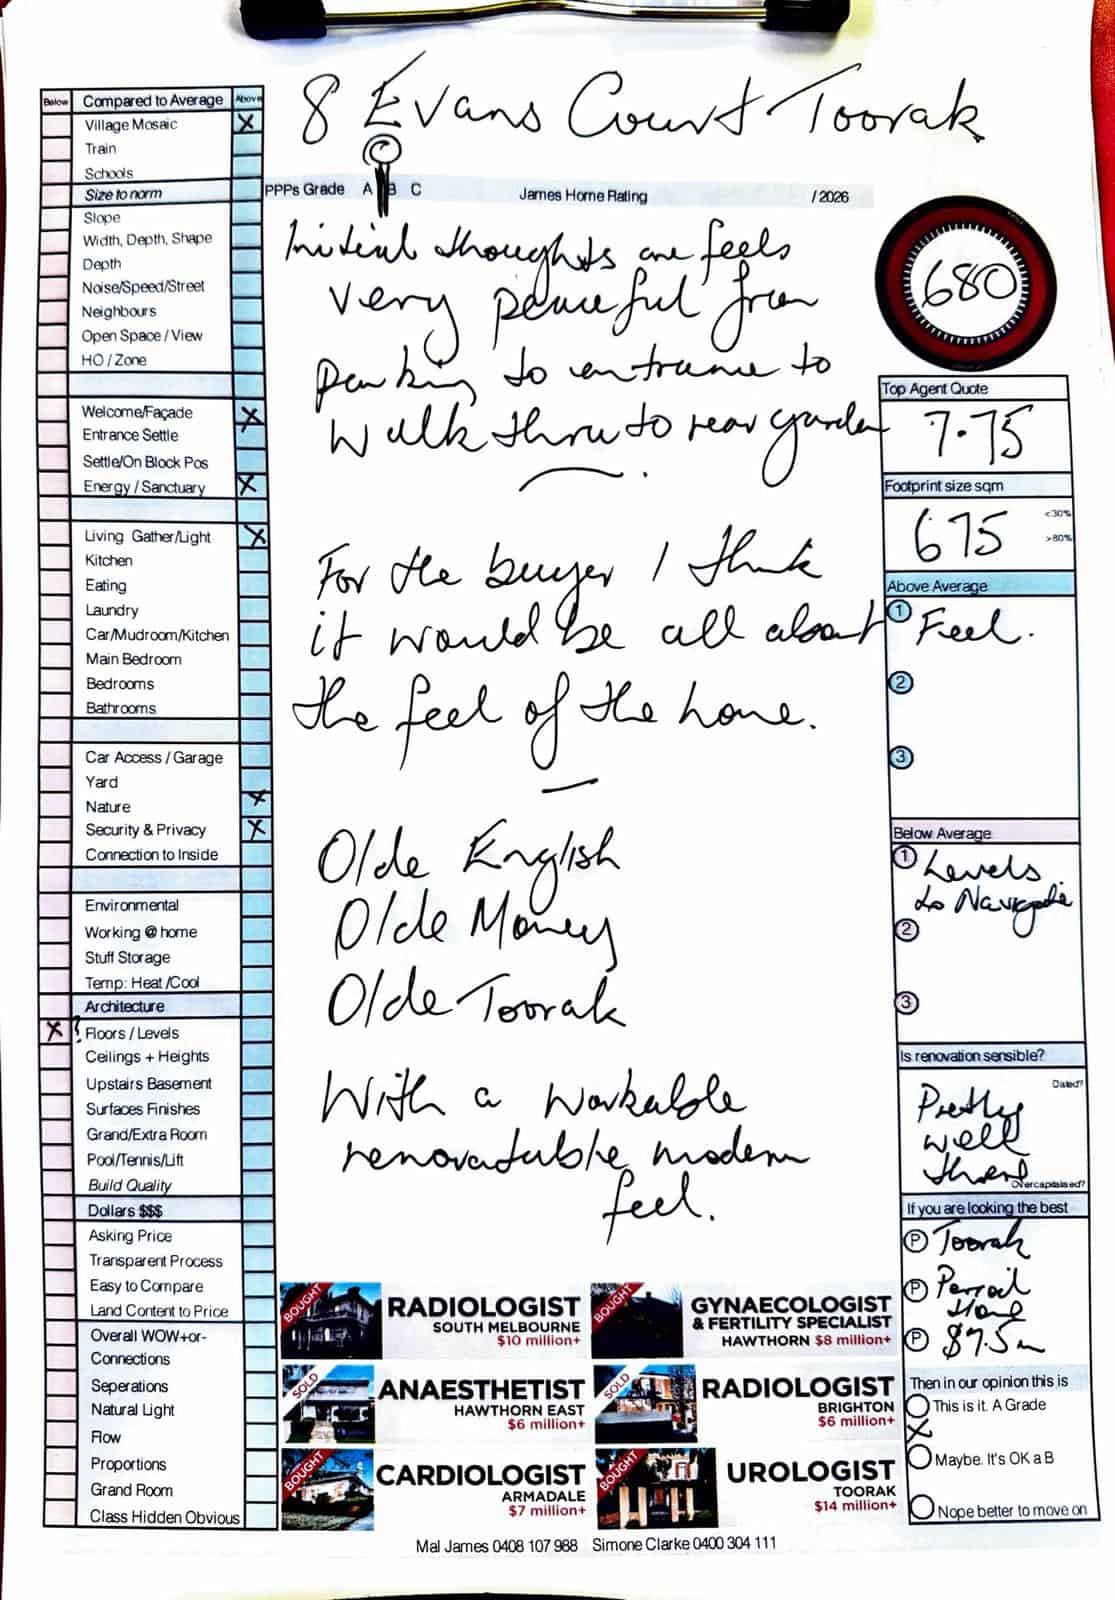 8 Evans Court Toorak
Below Compared to Average Above
Village Mosaic X
Train
Schools
Size to norm
Slope
Width, Depth, Shape
Depth
Noise/Speed/Street
Neighbours
Open Space / View
HO / Zone
Welcome/Façade X
Entrance Settle
Settle/On Block Pos
Energy / Sanctuary X
Living Gather/Light X
Kitchen
Eating
Laundry
Car/Mudroom/Kitchen
Main Bedroom
Bedrooms
Bathrooms
Car Access / Garage
Yard
Nature X
Security & Privacy X
Connection to Inside
Environmental
Working @ home
Stuff Storage
Temp: Heat /Cool
Architecture
X ? Floors / Levels
Ceilings + Heights
Upstairs Basement
Surfaces Finishes
Grand/Extra Room
Pool/Tennis/Lift
Build Quality
Dollars $$$
Asking Price
Transparent Process
Easy to Compare
Land Content to Price
Overall WOW+or-
Connections
Seperations
Natural Light
Flow
Proportions
Grand Room
Class Hidden Obvious
PPPs Grade A B C James Home Rating / 2026
Initial thoughts are feels
very peaceful from
parking to entrance to
walk thru to rear garden
For the buyer I think
it would be all about
the feel of the home.
Olde English
Olde Money
Olde Toorak
With a workable
renovatable modern
feel.
680
Top Agent Quote
7.75
Footprint size sqm
675
<30%
>80%
Above Average
1 Feel.
2
3
Below Average
1 Levels
to Navigate
2
3
Is renovation sensible?
Dated?
Pretty
well
there
Overcapitalised?
If you are looking the best
P Toorak
P Period
Home
P $7.5m
Then in our opinion this is
This is it. A Grade
X
Maybe. It's OK a B
Nope better to move on
BOUGHT
RADIOLOGIST
SOUTH MELBOURNE
$10 million+
BOUGHT
GYNAECOLOGIST
& FERTILITY SPECIALIST
HAWTHORN $8 million+
SOLD
ANAESTHETIST
HAWTHORN EAST
$6 million+
SOLD
RADIOLOGIST
BRIGHTON
$6 million+
BOUGHT
CARDIOLOGIST
ARMADALE
$7 million+
BOUGHT
UROLOGIST
TOORAK
$14 million+
Mal James 0408 107 988 Simone Clarke 0400 304 111